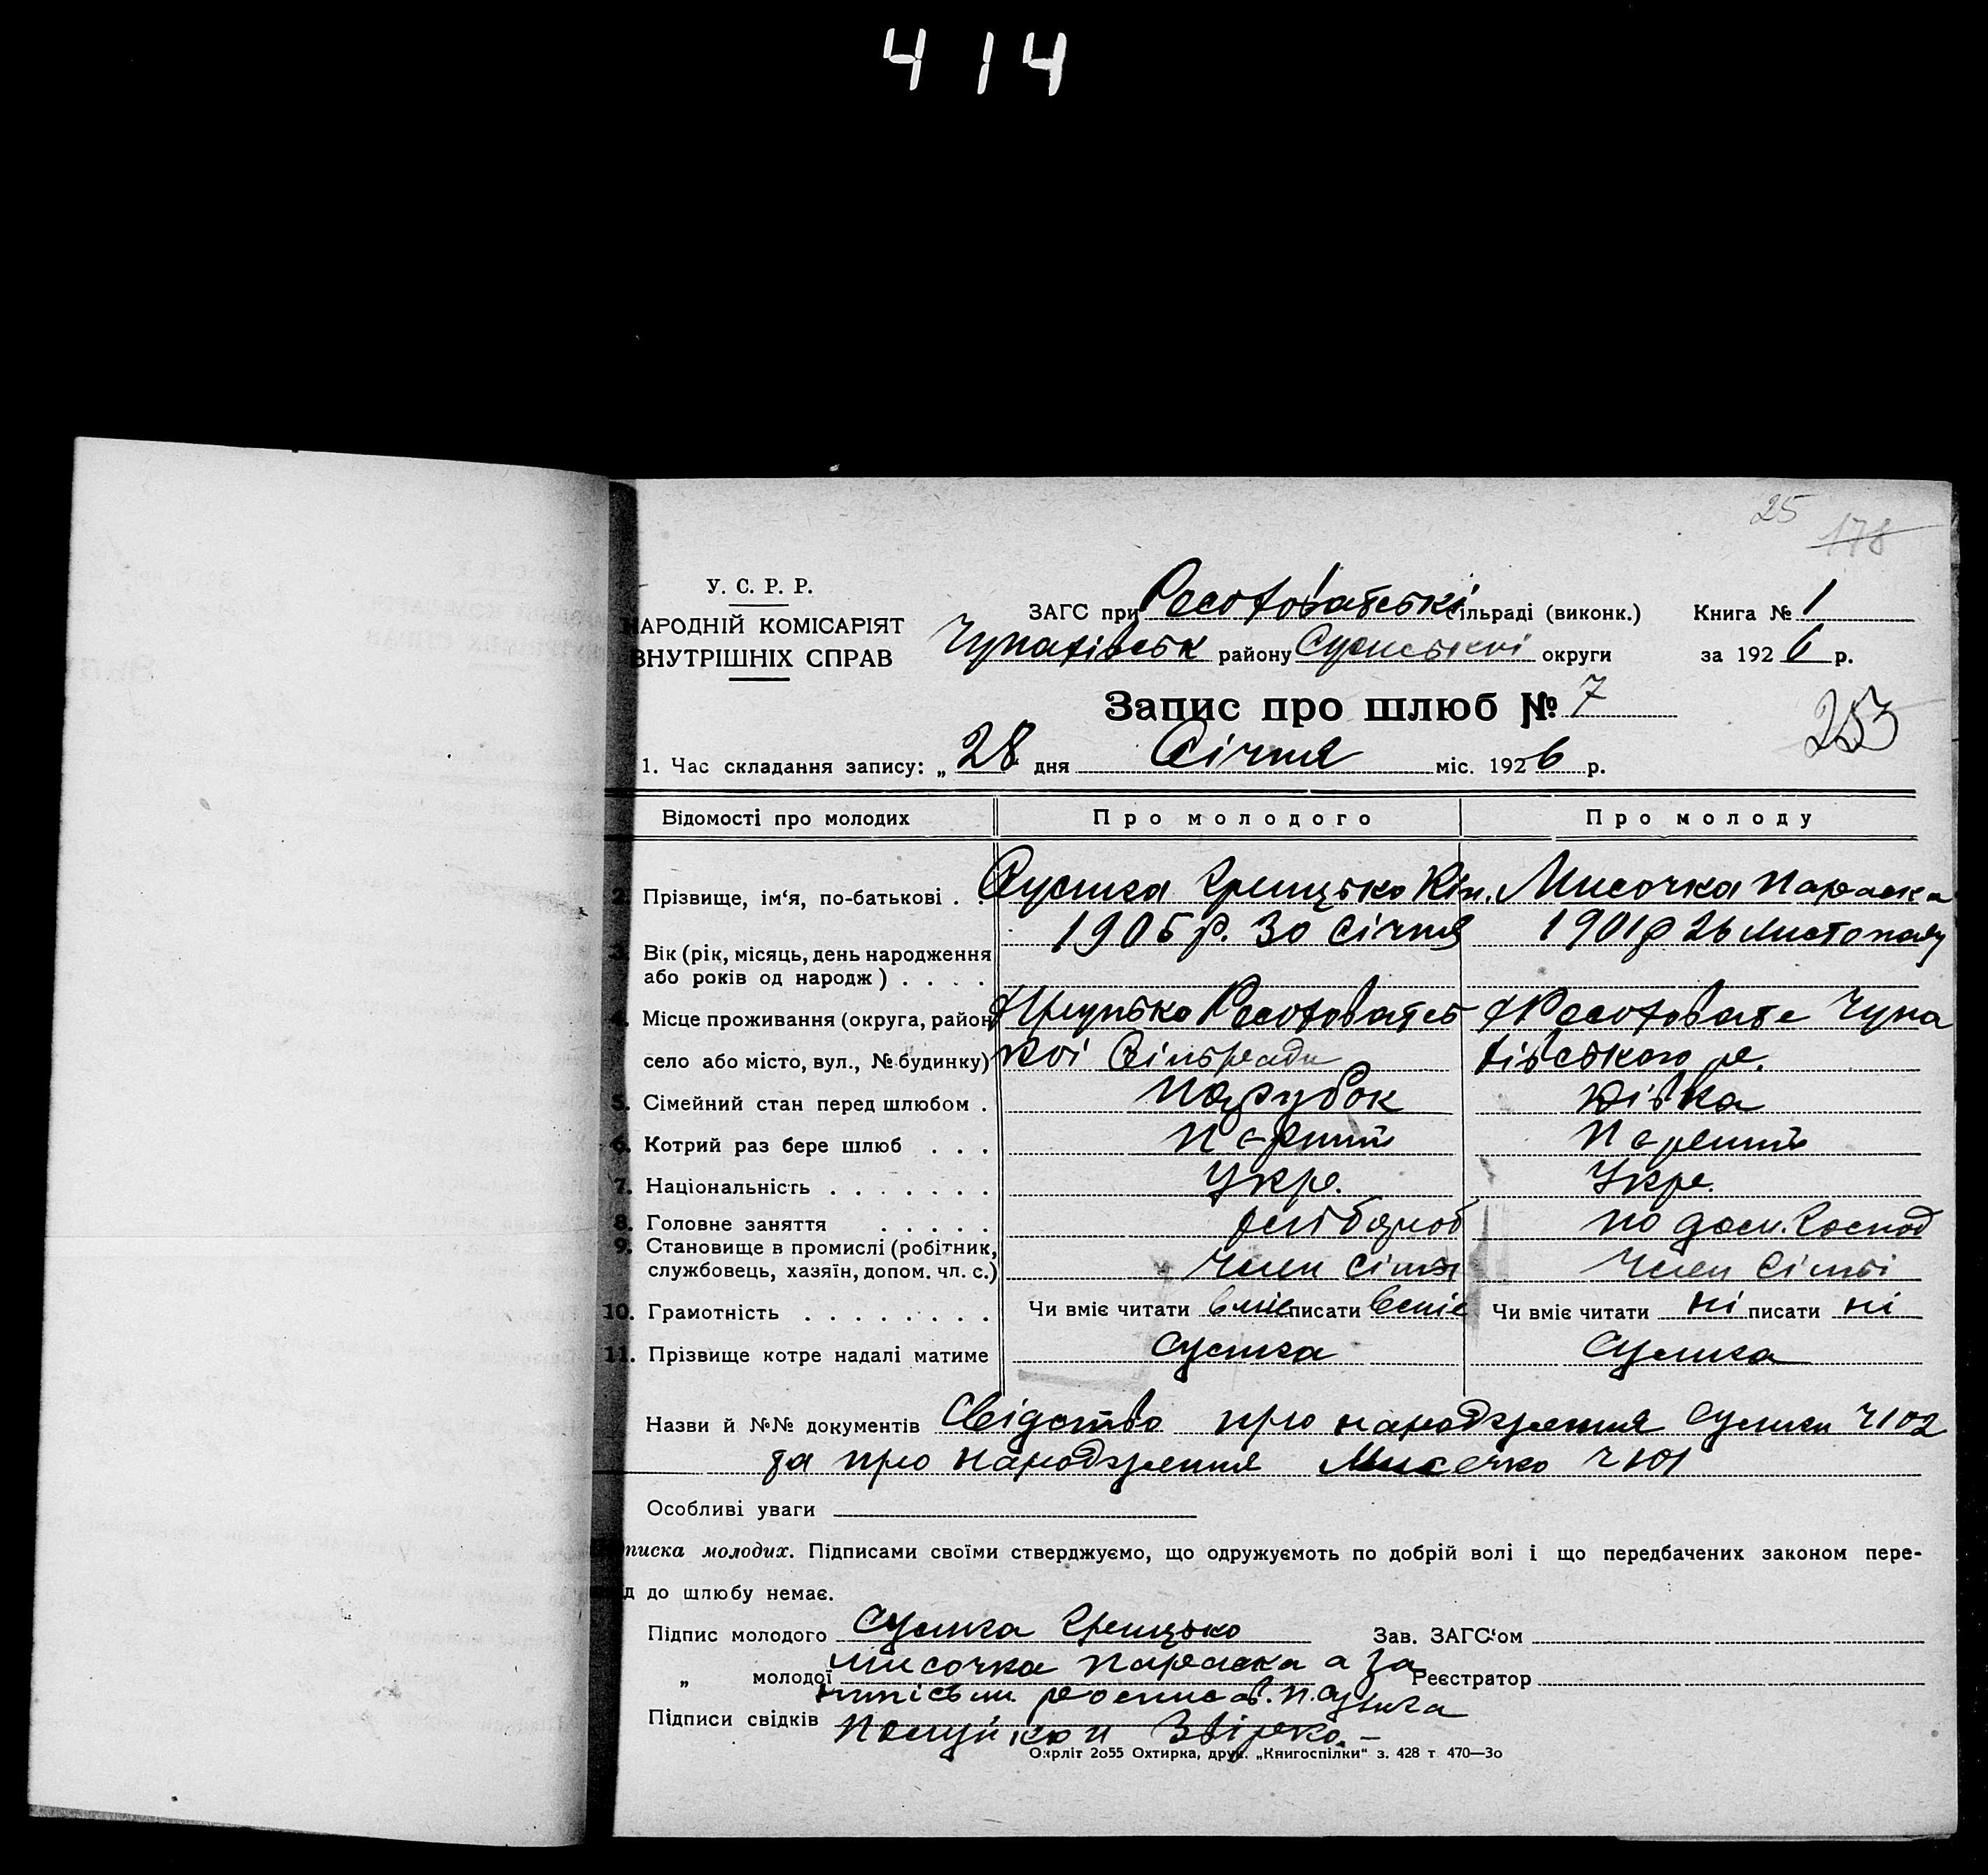 414
25
178
У. С. Р. Р.
НАРОДНІЙ КОМІСАРІЯТ
ВНУТРІШНІХ СПРАВ
ЗАГС при Рясотоватські сільраді (виконк.) Книга № 1
Чупахівськ району Сумської округи за 1926 р.
Запис про шлюб № 7
253
1. Час складання запису: „ 28 дня Січня міс. 1926 р.
Відомості про молодих Про молодого Про молоду
2. Прізвище, ім‘я, по-батькові . . Сумка Грицько Кін. Мисочка Параска
1905 р. 30 Січня 1901 р 26 Листопаду
3. Вік (рік, місяць, день народження
або років од народж) . . . .
4. Місце проживання (округа, район
село або місто, вул., № будинку) кої Сільради
5. Сімейний стан перед шлюбом . парубок дівка
6. Котрий раз бере шлюб . . . перший перший
7. Національність . . . . . . . Укр. Укр.
8. Головне заняття . . . . . хлібороб по дом. Господ
9. Становище в промислі (робітник,
службовець, хазяїн, допом. чл. с.) член сімї член сімї
10. Грамотність . . . . . . . . Чи вміє читати вміє писати вміє Чи вміє читати ні писати ні
11. Прізвище котре надалі матиме Сумка Сумка
Назви й №№ документів Свідотво про народження Сумки Ч 102
та про народження Мисечко Ч 101
Особливі уваги
писка молодих. Підписами своїми стверджуємо, що одружуємоть по добрій волі і що передбачених законом пере-
д до шлюбу немає.
Підпис молодого Сумка Грицько Зав. ЗАГС‘ом
„ молодої Мисочка Параска а за Реєстратор
Підписи свідків
Окрліт 2о55 Охтирка, друк. „Книгоспілки“ з. 428 т 470—3о